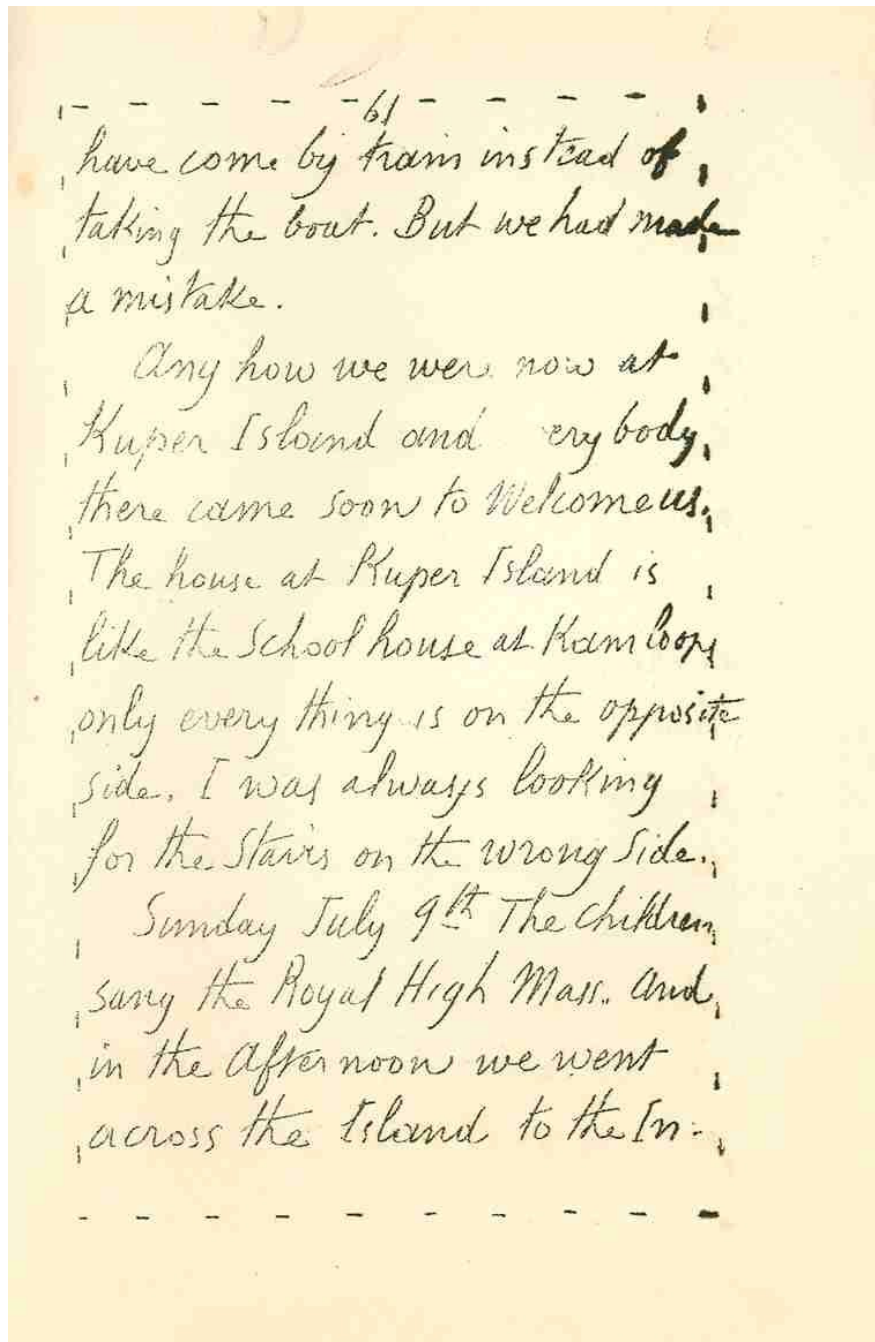 61
have come by train instead of
taking the boat. But we had made
a mistake.
Any how we were now at
Kuper Island and erybody
there came soon to Welcome us.
The house at Kuper Island is
like the School house at Kamloops
only every thing is on the opposite
side. I was always looking
for the Stairs on the wrong Side.
Sunday July 9th The children
sang the Royal High Mass. and
in the Afternoon we went
across the Island to the In-